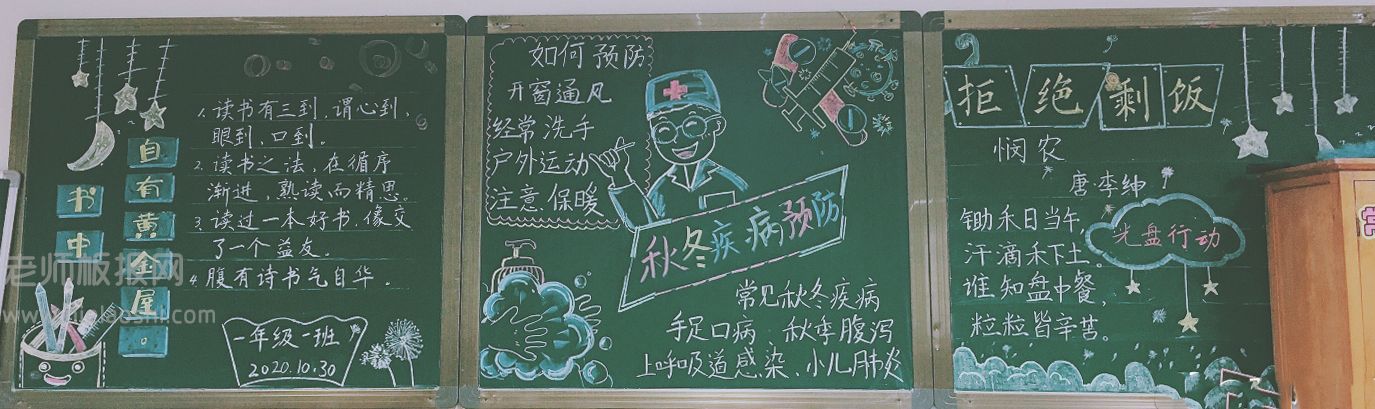 书中
自有黄金屋。
1.读书有三到,谓心到、
眼到、口到。
2.读书之法,在循序
渐进,熟读而精思。
3.读过一本好书,像交
了一个益友。
4.腹有诗书气自华。
一年级一班
2020.10.30
老师板报网
如何预防
开窗通风
经常洗手
户外运动
注意保暖
秋冬疾病预防
常见秋冬疾病
手足口病 秋季腹泻
上呼吸道感染、小儿肺炎
拒绝剩饭
悯农
唐·李绅
锄禾日当午,
汗滴禾下土。
谁知盘中餐,
粒粒皆辛苦。
光盘行动